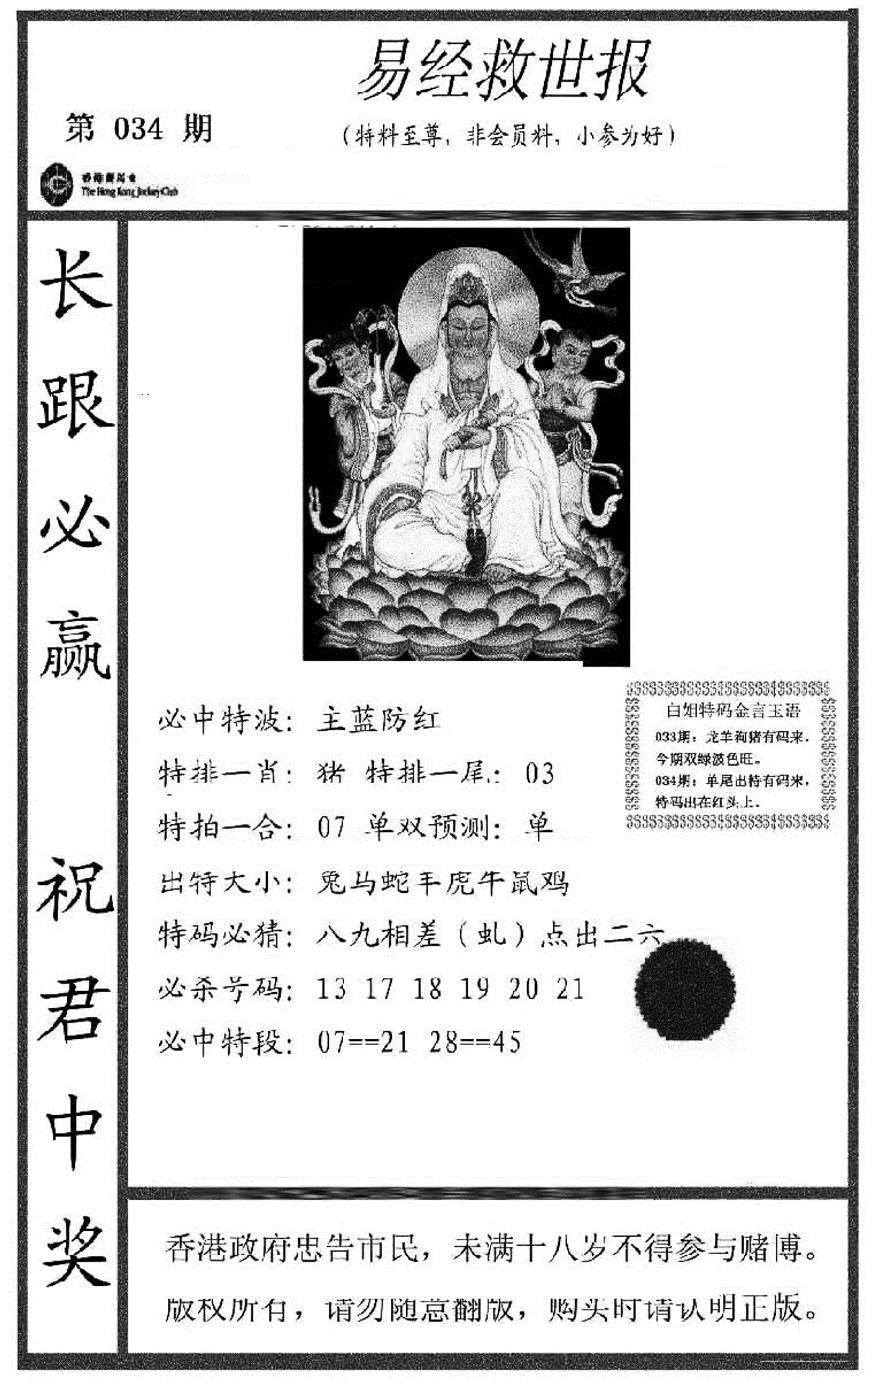 易经救世报
第 034 期
（特料至尊，非会员料，小参为好）
香港賽馬會
The Hong Kong Jockey Club
长跟必赢
祝君中奖
必中特波：主蓝防红
特排一肖：猪 特排一尾：03
特拍一合：07 单双预测：单
出特大小：兔马蛇羊虎牛鼠鸡
特码必猜：八九相差（虬）点出二六
必杀号码：13 17 18 19 20 21
必中特段：07==21 28==45
白姐特码金言玉语
033期：龙羊狗猪有码来，
今期双绿波色旺。
034期：单尾出特有码来，
特码出在红头上。
香港政府忠告市民，未满十八岁不得参与赌博。
版权所有，请勿随意翻版，购买时请认明正版。